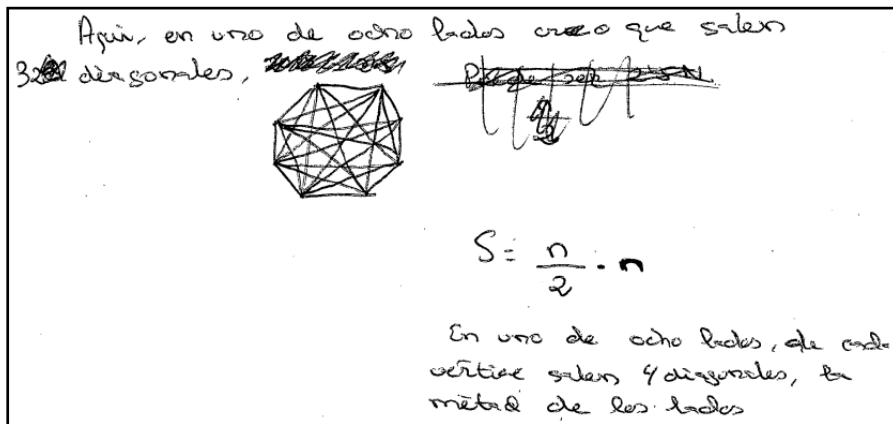 Aquí, en uno de ocho lados creo que salen
32 diagonales,
S = n/2 · n
En uno de ocho lados, de cada
vértice salen 4 diagonales, la
mitad de los lados